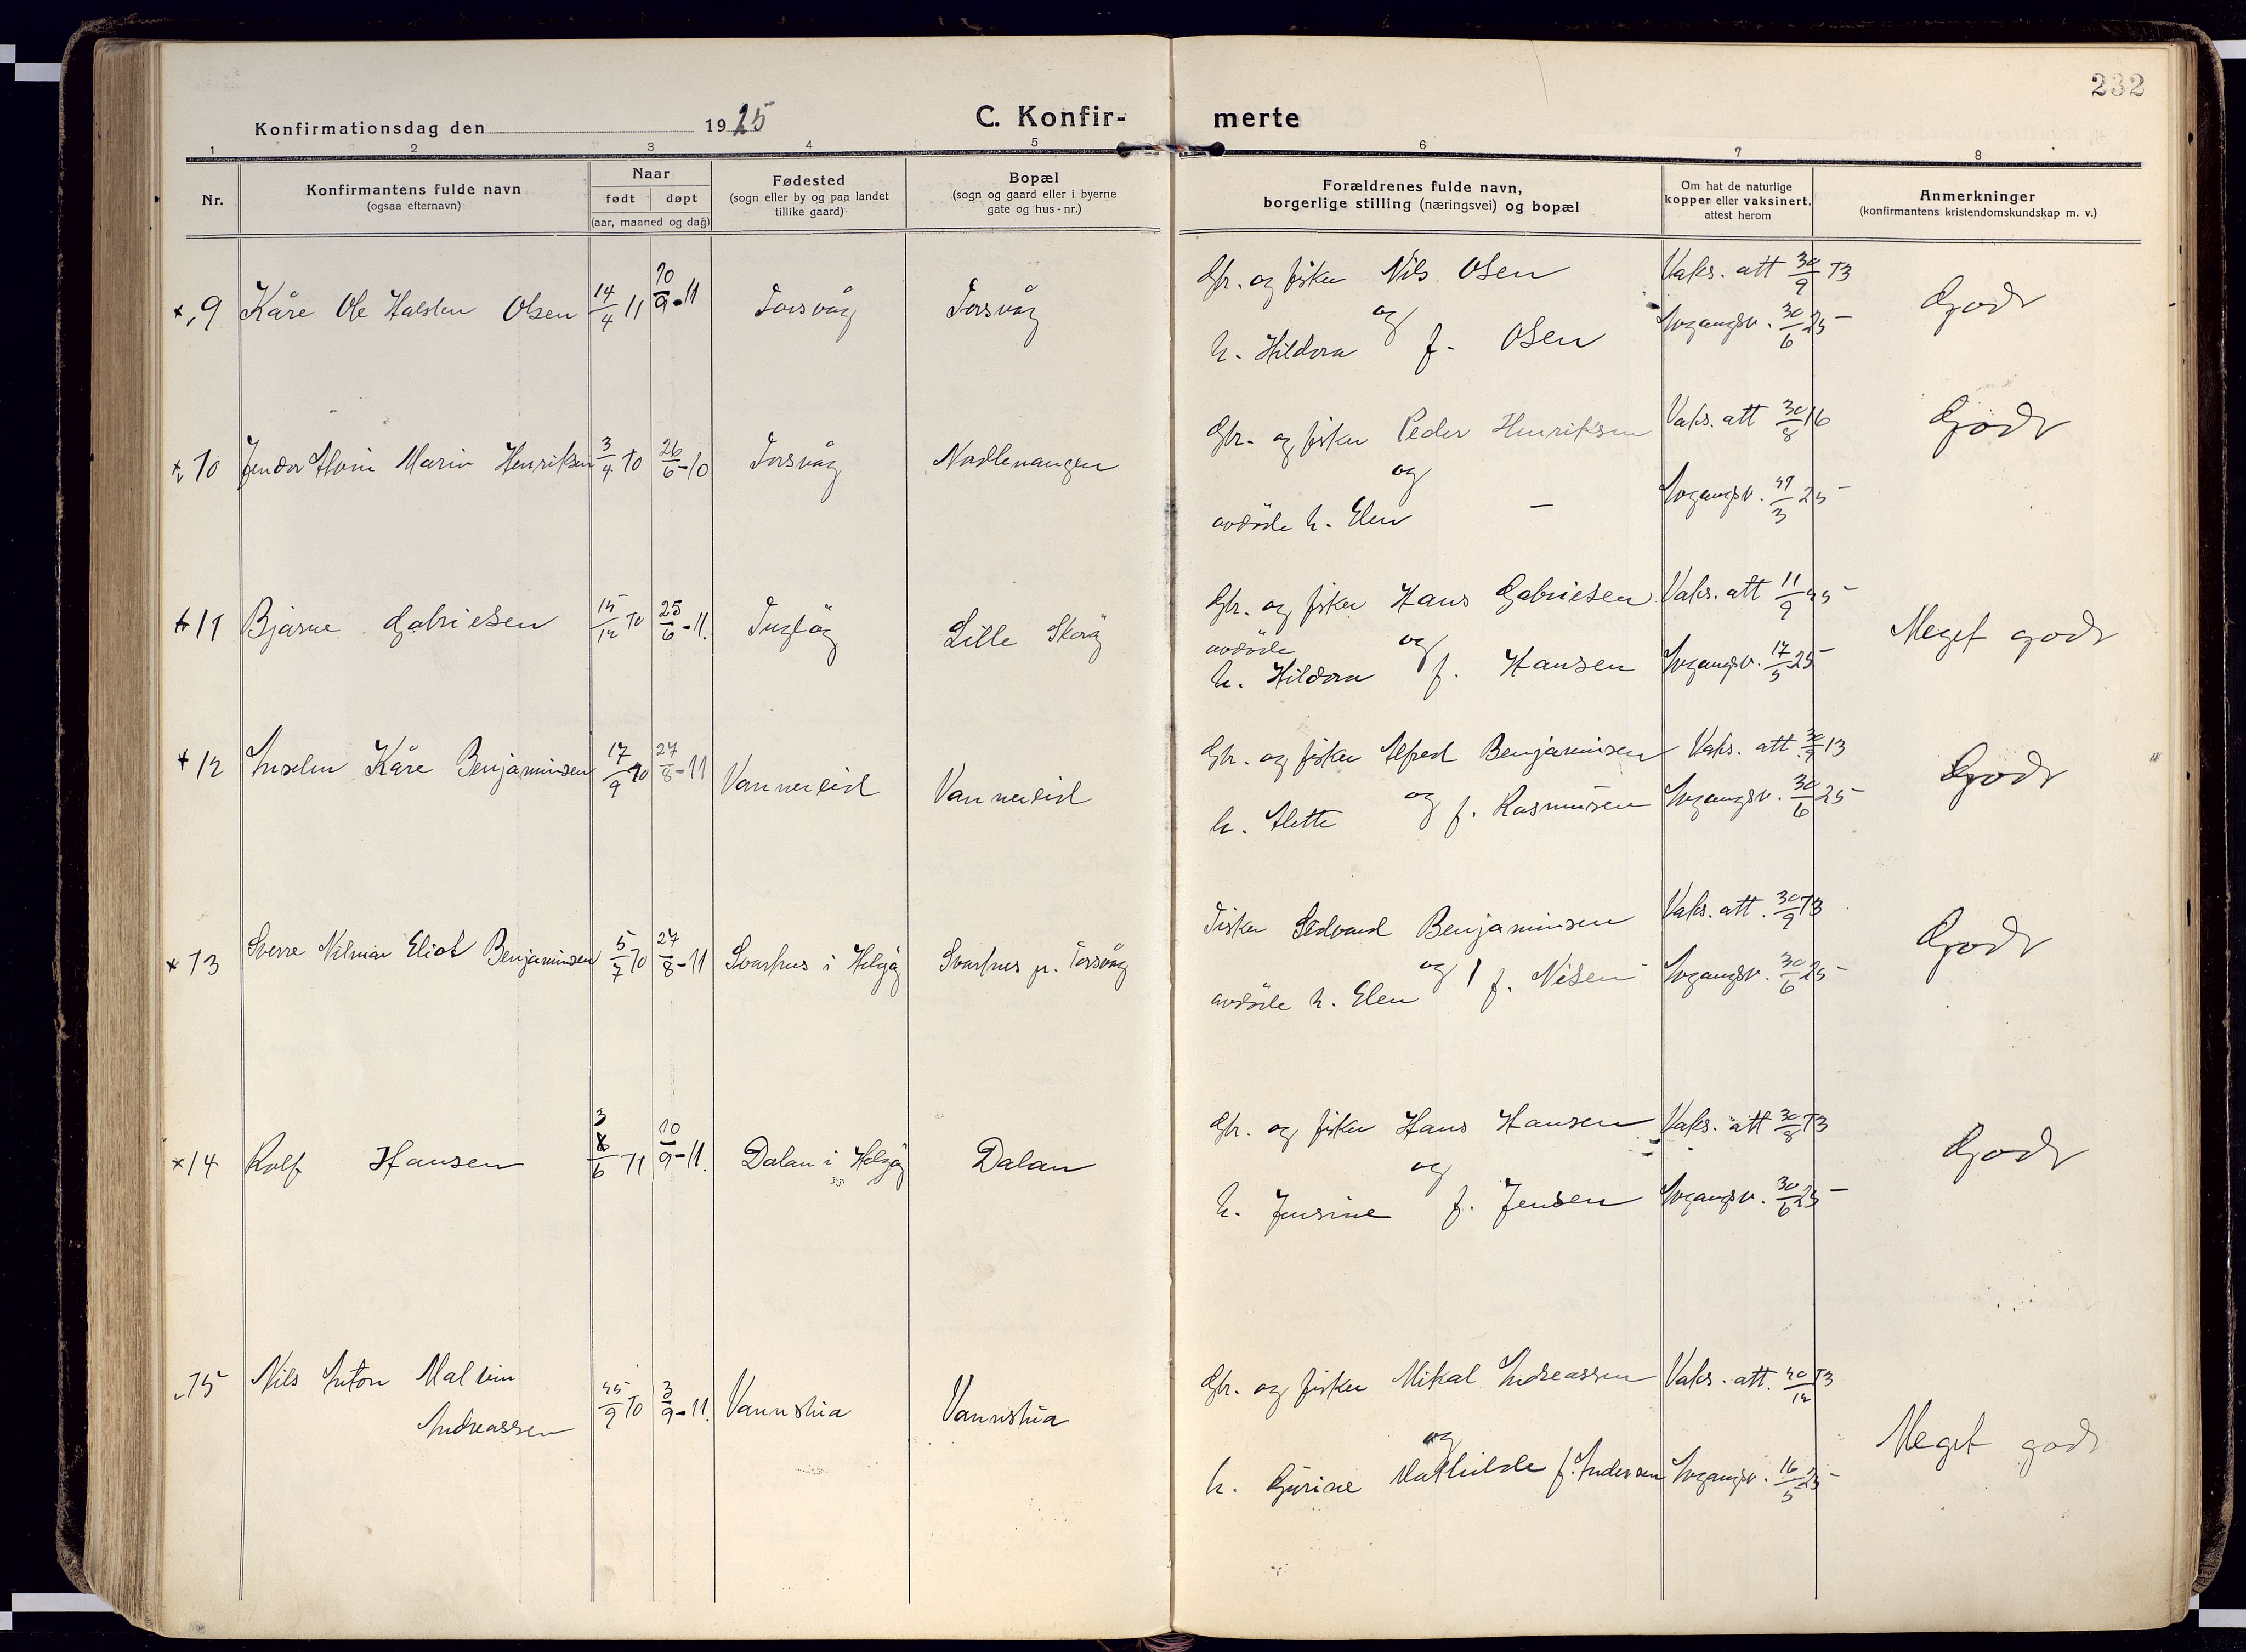 232
Konfirmationsdag den 1925 C. Konfir- merte
1 2 3 4 5 6 7 8
Nr.
Konfirmantens fulde navn
(ogsaa efternavn)
Naar
født døpt
(aar, maaned og dag)
Fødested
(sogn eller by og paa landet
tillike gaard)
Bopæl
(sogn og gaard eller i byerne
gate og hus-nr.)
Forældrenes fulde navn,
borgerlige stilling (næringsvei) og bopæl
Om hat de naturlige
kopper eller vaksinert,
attest herom
Anmerkninger
(konfirmantens kristendomskundskap m. v.)
9 Kåre Ole Halsten Olsen 14/4 11 10/9-11 Torsvåg Torsvåg
Gbr. og fisker Nils Olsen
og
h. Hildora f. Olsen
Vaks. att 30/9 13
Svagangsv. 30/6 25
Godt
10 Henriksen 3/4 10 26/6-10 Torsvåg Nordlenangen
Gbr. og fisker Peder Henriksen
og
avdöde h. Elen —
Vaks. att 30/8 16
25
Godt
11 Bjarne Gabrielsen 15/12 10 25/6-11. Lille Skorøy
Gbr. og fisker Hans Gabrielsen
avdöde og
h. Hildora f. Hansen
Vaks. att 11/9 25
17/5 25
Meget godt
12 Kåre Benjaminsen 17/9 10 27/8-11 Vannereid Vannereid
Gbr. og fisker Alfred Benjaminsen
og
h. Alette f. Rasmusen
Vaks. att 30/9 13
30/6 25
Godt
13 Sverre Vilmar Eliot Benjaminsen 5/7 10 27/8-11 Svarhus i Helgøy Svarhus pr. Torsvåg
Fisker Edvard Benjaminsen
og
avdöde h. Elen f. Nilsen
Vaks. att. 30/9 13
30/6 25
Godt
14 Rolf Hansen 3/6 11 10/9-11. Dalan i Helgøy Dalan
Gbr. og fisker Hans Hansen
og
h. Jensine f. Jensen
Vaks. att 30/8 13
30/6 25
Godt
15 Nils Anton Malvin
Andreassen 25/9 10 3/9-11. Vannstua Vannstua
Gbr. og fisker Mikal Andreassen
og
h. Gurine Mathilde f. Andersen
Vaks. att. 20/12 13
16/5 25
Meget godt